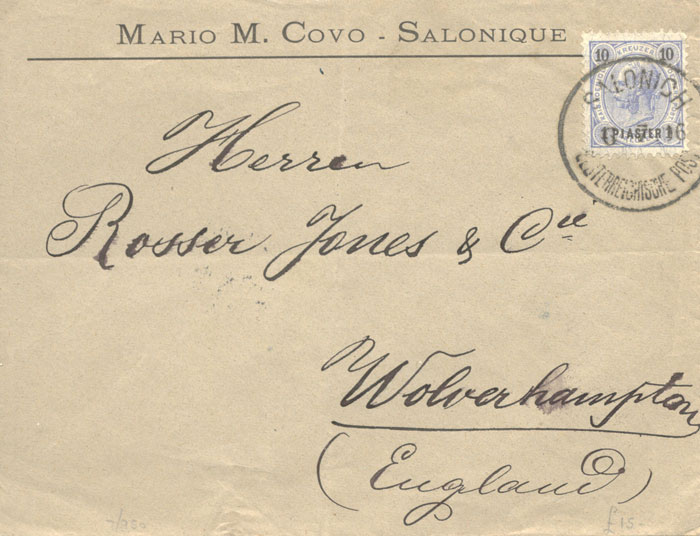 MARIO M. COVO - SALONIQUE
10 KREUZER 10
1 PIASTER 1
SALONICH
OESTERREICHISCHE POST
Herren
Rosser Jones & Cie
Wolverhampton
(England)
7/750
£15-